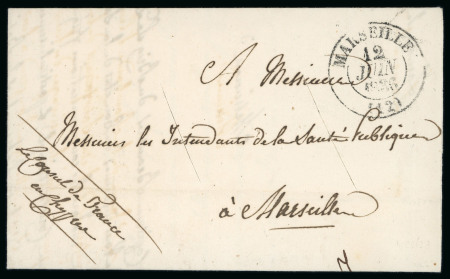 MARSEILLE
12
JUIN
(12)
A Messieurs
Messieurs les Intendants de la Santé Publique
à Marseille
Le Consul de France
en Chypre